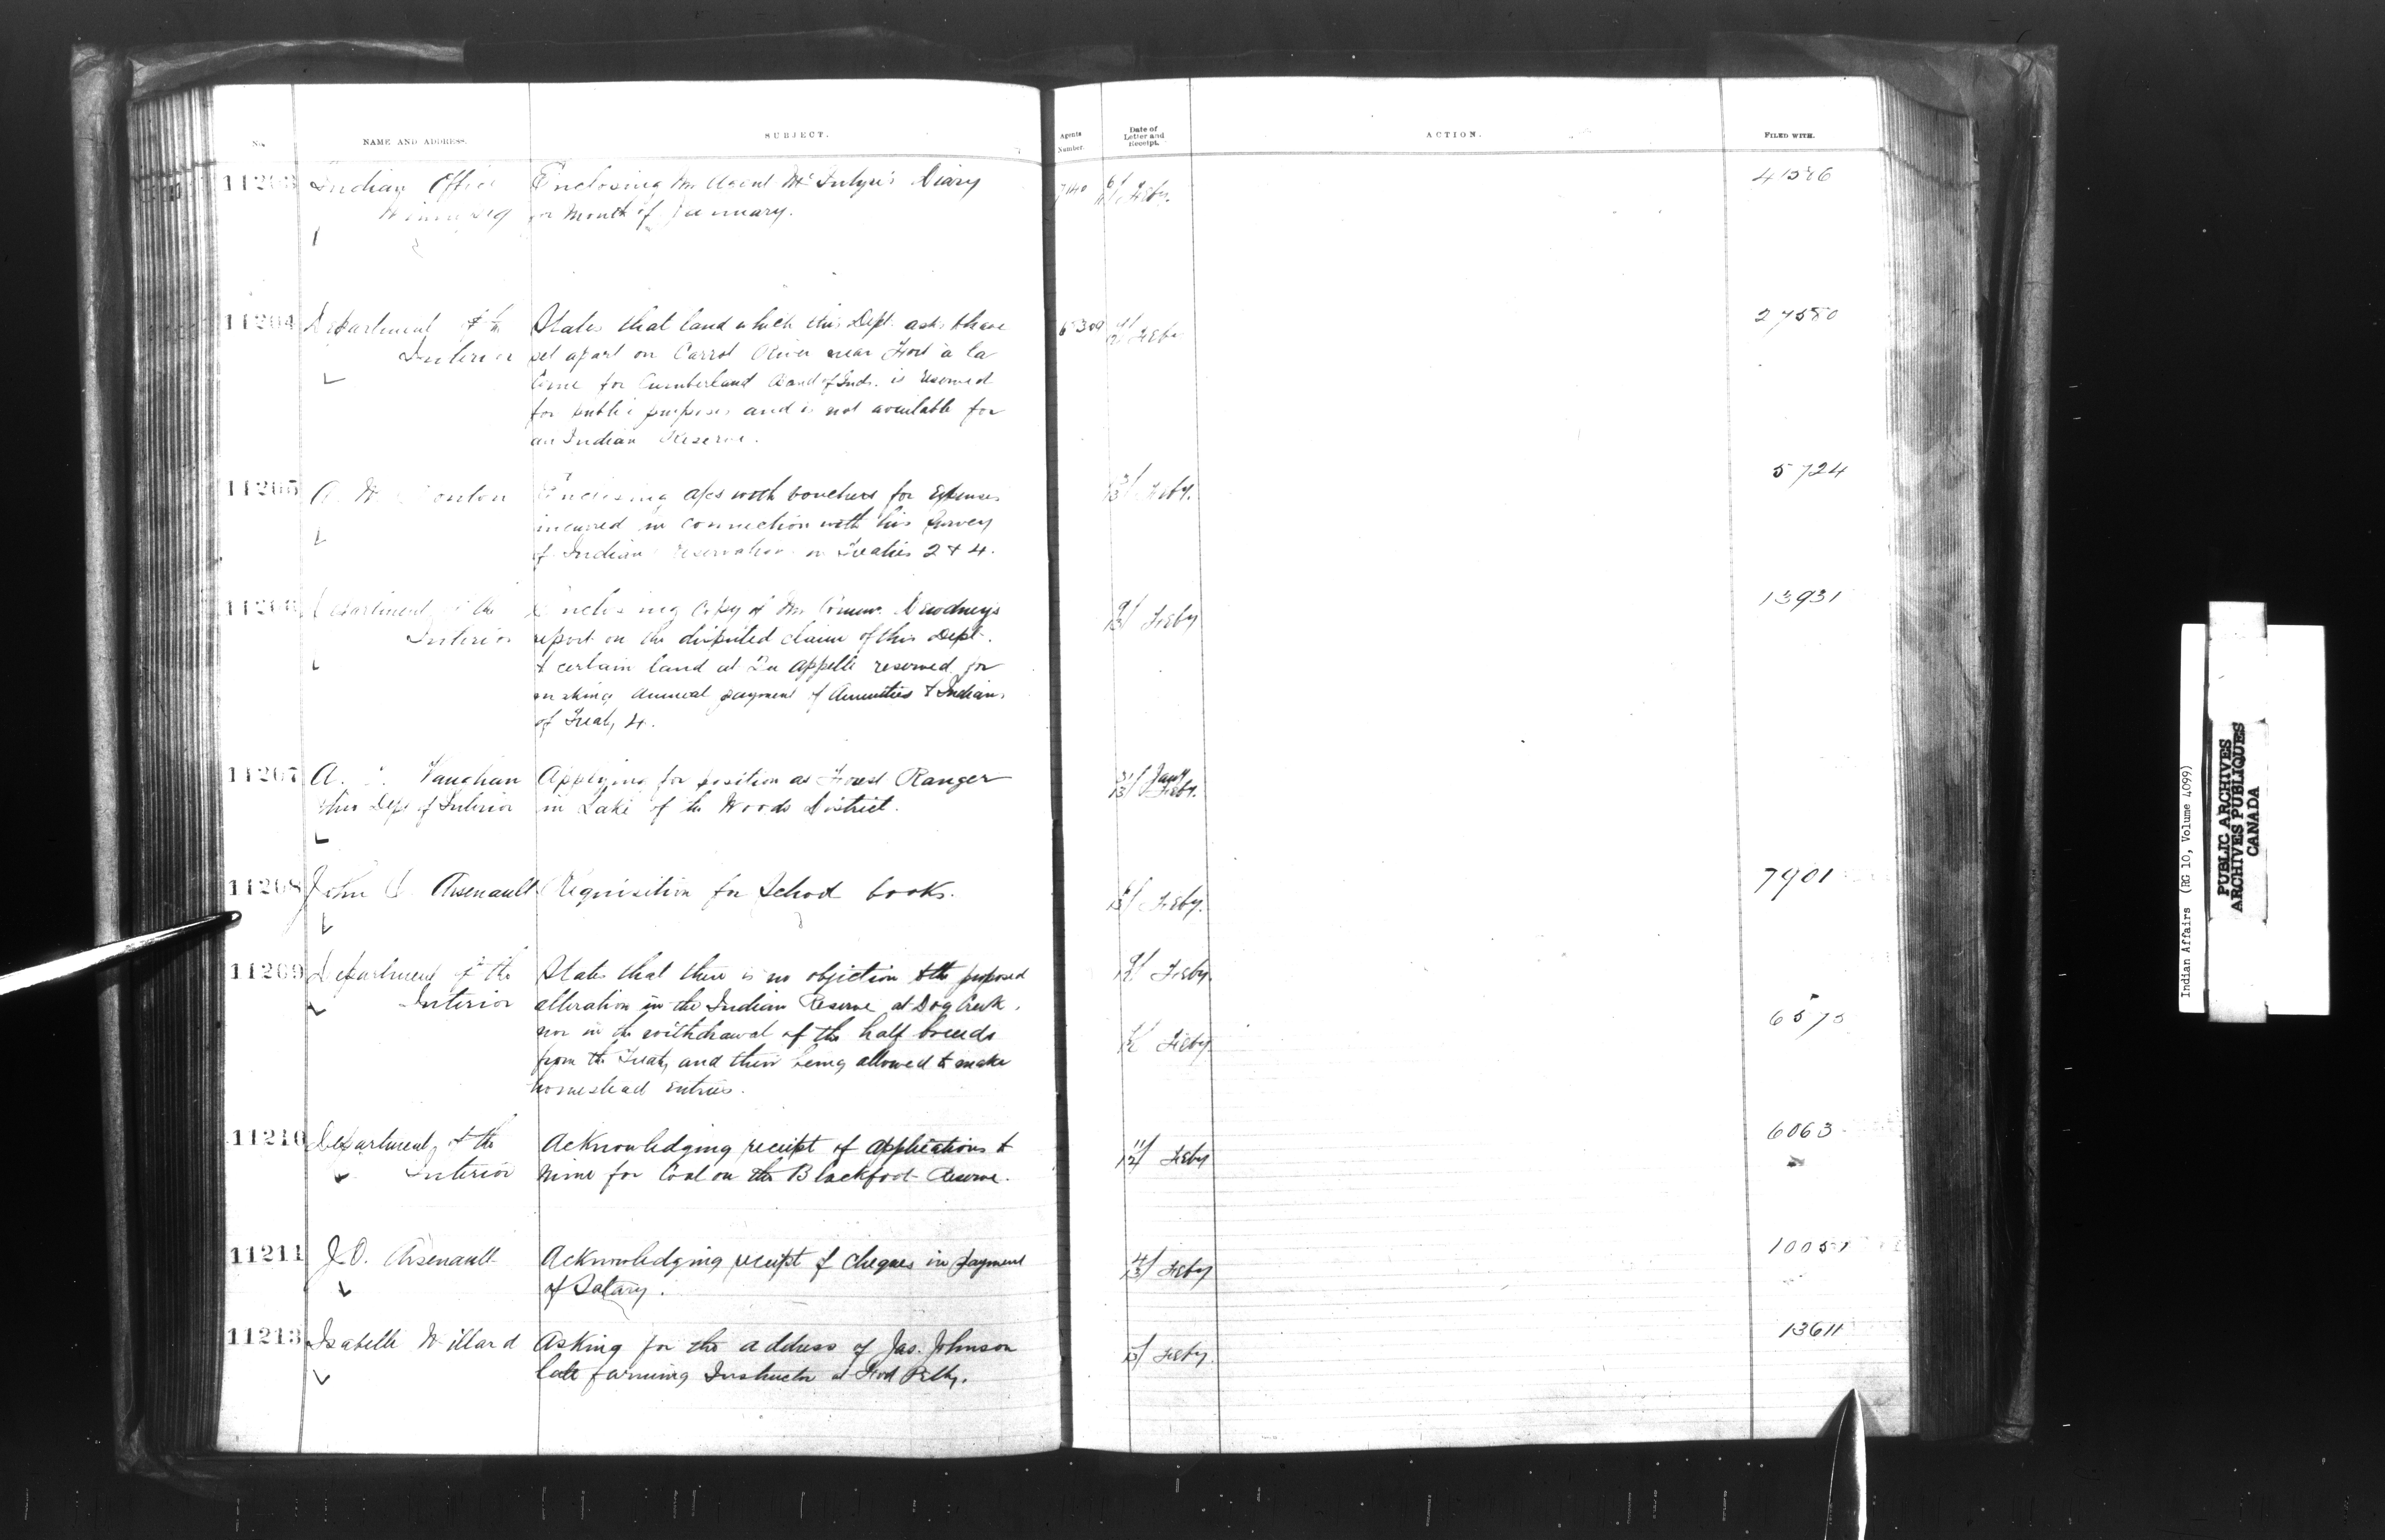 No. NAME AND ADDRESS. SUBJECT. Agents Number. Date of Letter and Receipt. ACTION. FILED WITH.
11203 Indian Office Enclosing Mr Agent McIntyre's Diary 6/ Feby. 4
Winnipeg for Month of January.
11204 Department of the States that land which this Dept. asks to have Feby 27580
Interior set apart on Carrot River near Fort à la
Corne for Cumberland Band of Inds. is reserved
for public purposes and is not available for
an Indian Reserve.
11205 A. W. Enclosing a/cs with vouchers for Expenses Feby. 5724
incurred in connection with his Survey
of Indian reservations in Treaties 2 & 4.
11206 Department of the Enclosing Copy of Mr Commr. Dewdney's 9/ Feby 13931
Interior report on the disputed claim of this Dept.
to certain land at Qu'Appelle reserved for
making annual payment of Annuities to Indians
of Treaty 4.
11207 A. Vaughan Applying for position as Forest Ranger 31/ Jany
this Dept of Interior in Lake of the Woods District. 13/ Feby.
11208 John O. Arsenault Requisition for School books. Feby. 7901
11209 Department of the States that there is no objection to the proposed 9/ Feby.
Interior alteration in the Indian Reserve at Dog Creek,
nor in the withdrawal of the half breeds Feby. 6575
from the Treaty and their being allowed to make
homestead entries.
11210 Department of the Acknowledging receipt of applications to 11/12 Feby 6063
Interior mine for Coal on the Blackfoot Reserve.
11211 J.O. Arsenault Acknowledging receipt of cheques in payment Feby 1005
of Salary.
11213 Isabelle Willard Asking for the address of Jas. Johnson Feby. 13611
late farming Instructor at Fort Pelly.
Indian Affairs (RG 10, Volume 4099)
PUBLIC ARCHIVES
ARCHIVES PUBLIQUES
CANADA